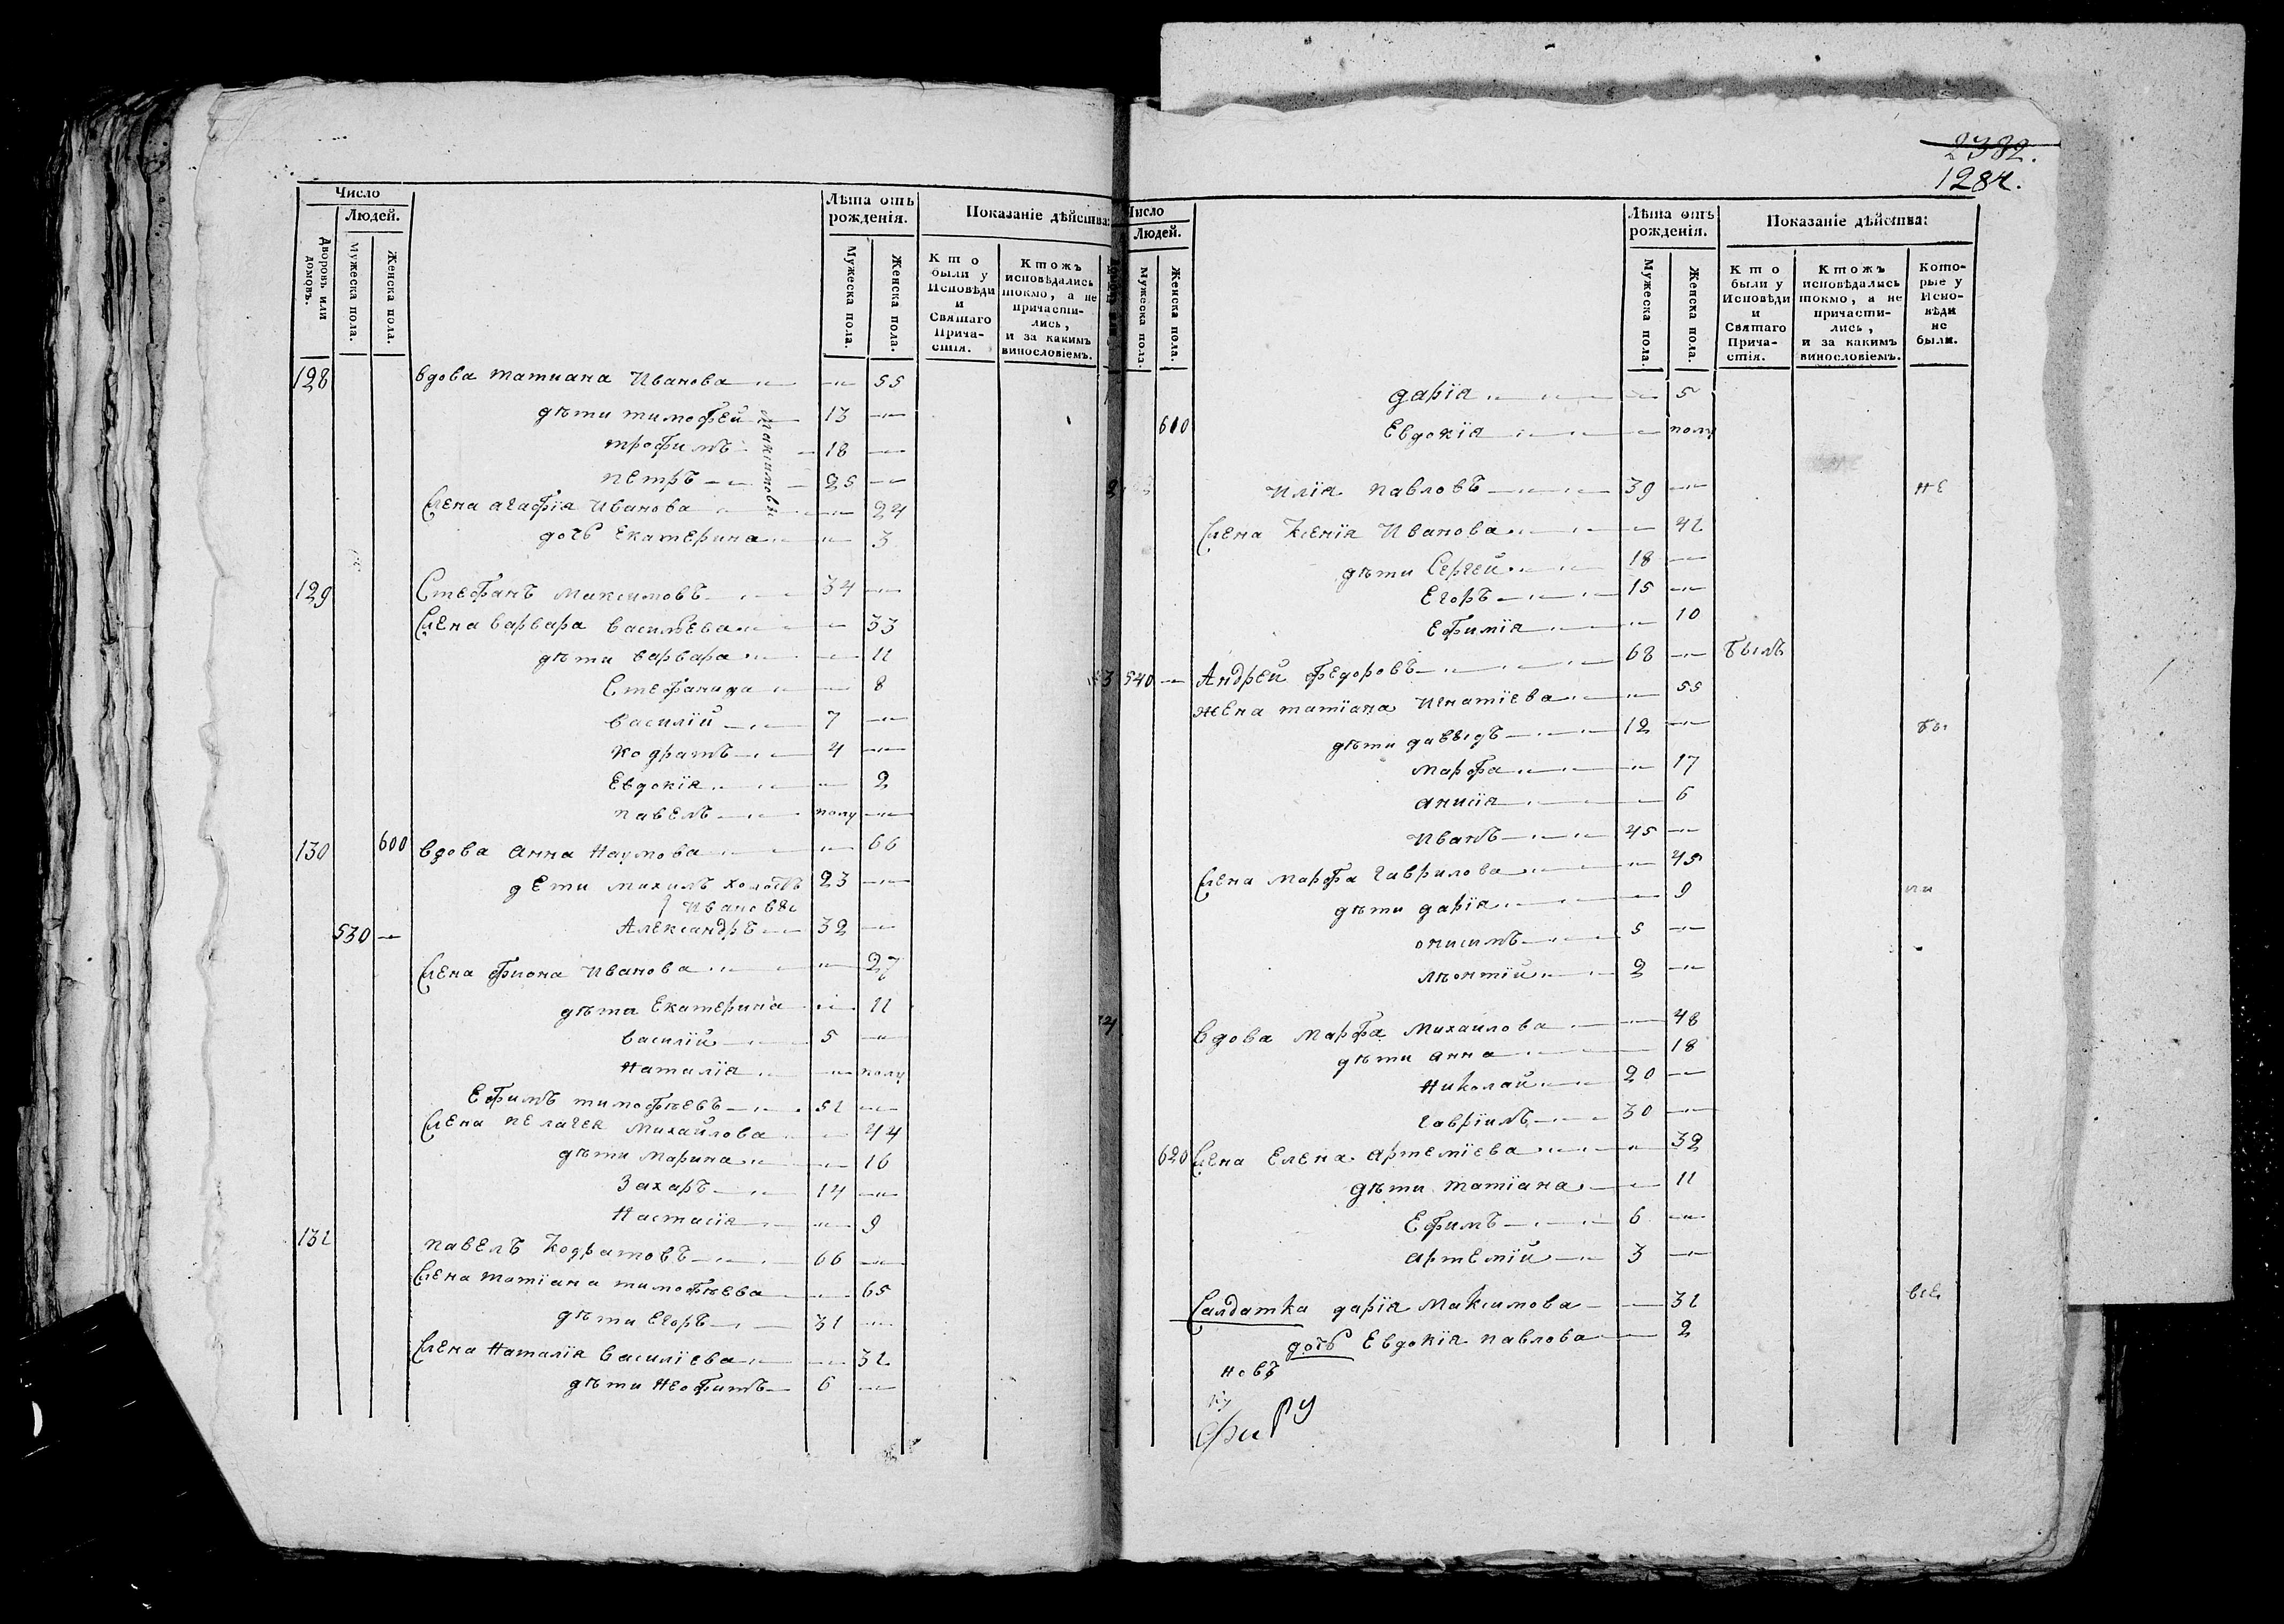 Число
Людей.
Дворовъ или домовъ.
Мужеска пола.
Женска пола.
Лѣта отъ рожденія.
Мужеска пола.
Женска пола.
Показаніе дѣйства:
Кто были у Исповѣди и Святаго Прича-стія.
Ктожъ исповѣдались токмо, а не причасти-лись, и за какимъ винословіемъ.
128 вдова татиана Иванова 55
дѣти тимофей 13
максимовы
трофимъ 18
петръ 25
жена агафїя Иванова 24
дочь Екатерина 3
129 Стефанъ Максимовъ 34
жена варвара васильева 33
дѣти варвара 11
Стефанида 8
василїй 7
кодратъ 4
Евдокїя 2
павелъ полу
130 600 вдова анна Наумова 66
дети михаилъ холостъ 23
Ивановы
530 Александръ 32
жена фиона Иванова 27
дѣти Екатерина 11
василїй 5
Наталїя полу
Ефимъ тимофѣевъ 51
жена пелагея Михайлова 44
дѣти Марина 16
Захаръ 14
Настасїя 9
131 павелъ Кодратовъ 66
жена татїана тимофѣева 65
дѣти Егоръ 31
жена Наталїя василїева 31
дѣти Неофитъ 6
2382.
1284.
Число
Людей.
Мужеска пола.
Женска пола.
Лѣта отъ рожденія.
Мужеска пола.
Женска пола.
Показаніе дѣйства:
Кто были у Исповѣди и Святаго Прича-стія.
Ктожъ исповѣдались токмо, а не причасти-лись, и за какимъ винословіемъ.
Кото-рые у Испо-вѣди не были.
дарїя 5
610 Евдокїя полу
2 Илїя павловъ 39 не
жена Ксенїя Иванова 41
дѣти Сергей 18
Егоръ 15
Ефимїя 10
3 540 Андрей федоровъ 68 былъ
жена татїана Игнатїева 55
дѣти давыдъ 12 бы
марфа 17
анисїя 6
Иванъ 45
жена марфа гаврилова 45
дѣти дарїя 9 ли
онисимъ 5
лѣонтїй 2
4 вдова марфа михаилова 48
дѣти анна 18
Николай 20
гаврїилъ 30
620 жена Елена артемїева 32
дѣти татїана 11
Ефимъ 6
артемїй 3
Салдатка дарїя Максимова 31 все
дочь Евдокїя павлова 2
новъ